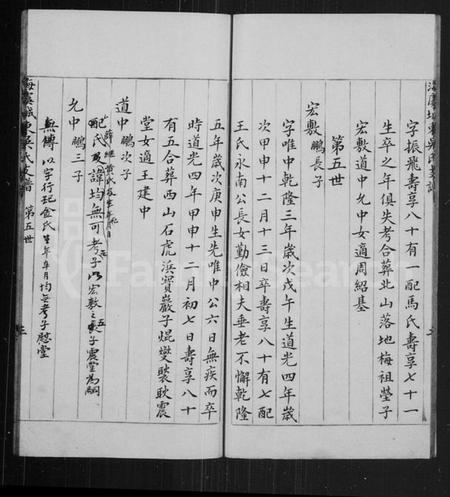 字振飛壽享八十有一配馬氏壽享七十一
生卒之年俱失考合葬北山落地梅祖塋子
宏敷道中允中女適周紹基
第五世
宏敷 鵬長子
字唯中乾隆三年歲次戊午生道光四年歲
次甲申十二月十三日卒壽享八十有七配
王氏永南公長女勤儉相夫垂老不懈乾隆
五年歲次庚申生先唯中公六日無疾而卒
時道光四年甲申十二月初七日壽享八十
有五合葬西山石虎浜寶巖子焜燮裝耿震
堂女適王建中
道中 鵬次子
配氏及諱均無可考子以宏敷之五子震堂為嗣
允中 鵬三子
無傳以字行配金氏生卒年月均無考子慰堂
第五世